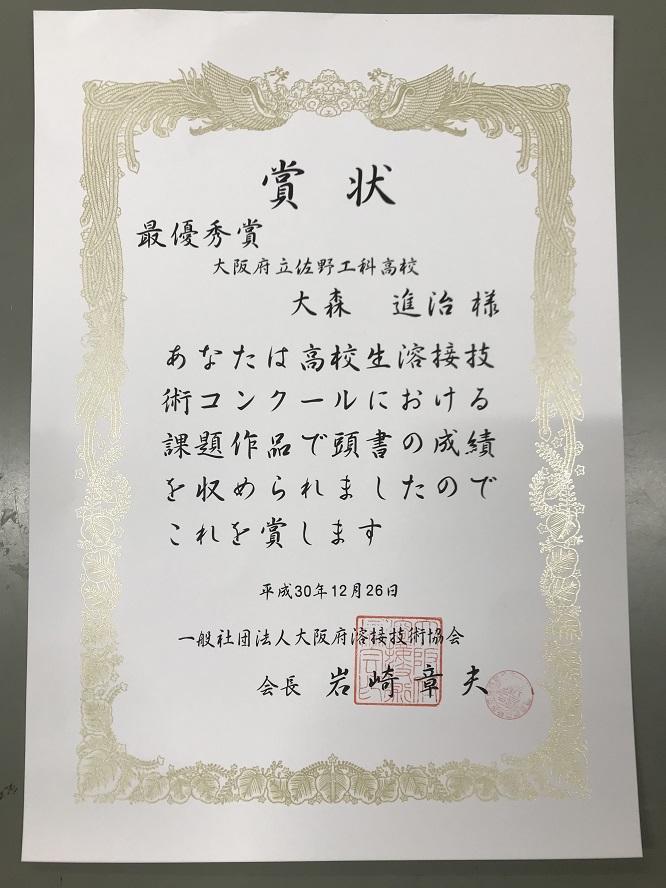 賞状
最優秀賞
大阪府立佐野工科高校
大森 進治 様
あなたは高校生溶接技
術コンクールにおける
課題作品で頭書の成績
を収められましたので
これを賞します
平成30年12月26日
一般社団法人大阪府溶接技術協会
会長 岩崎章夫